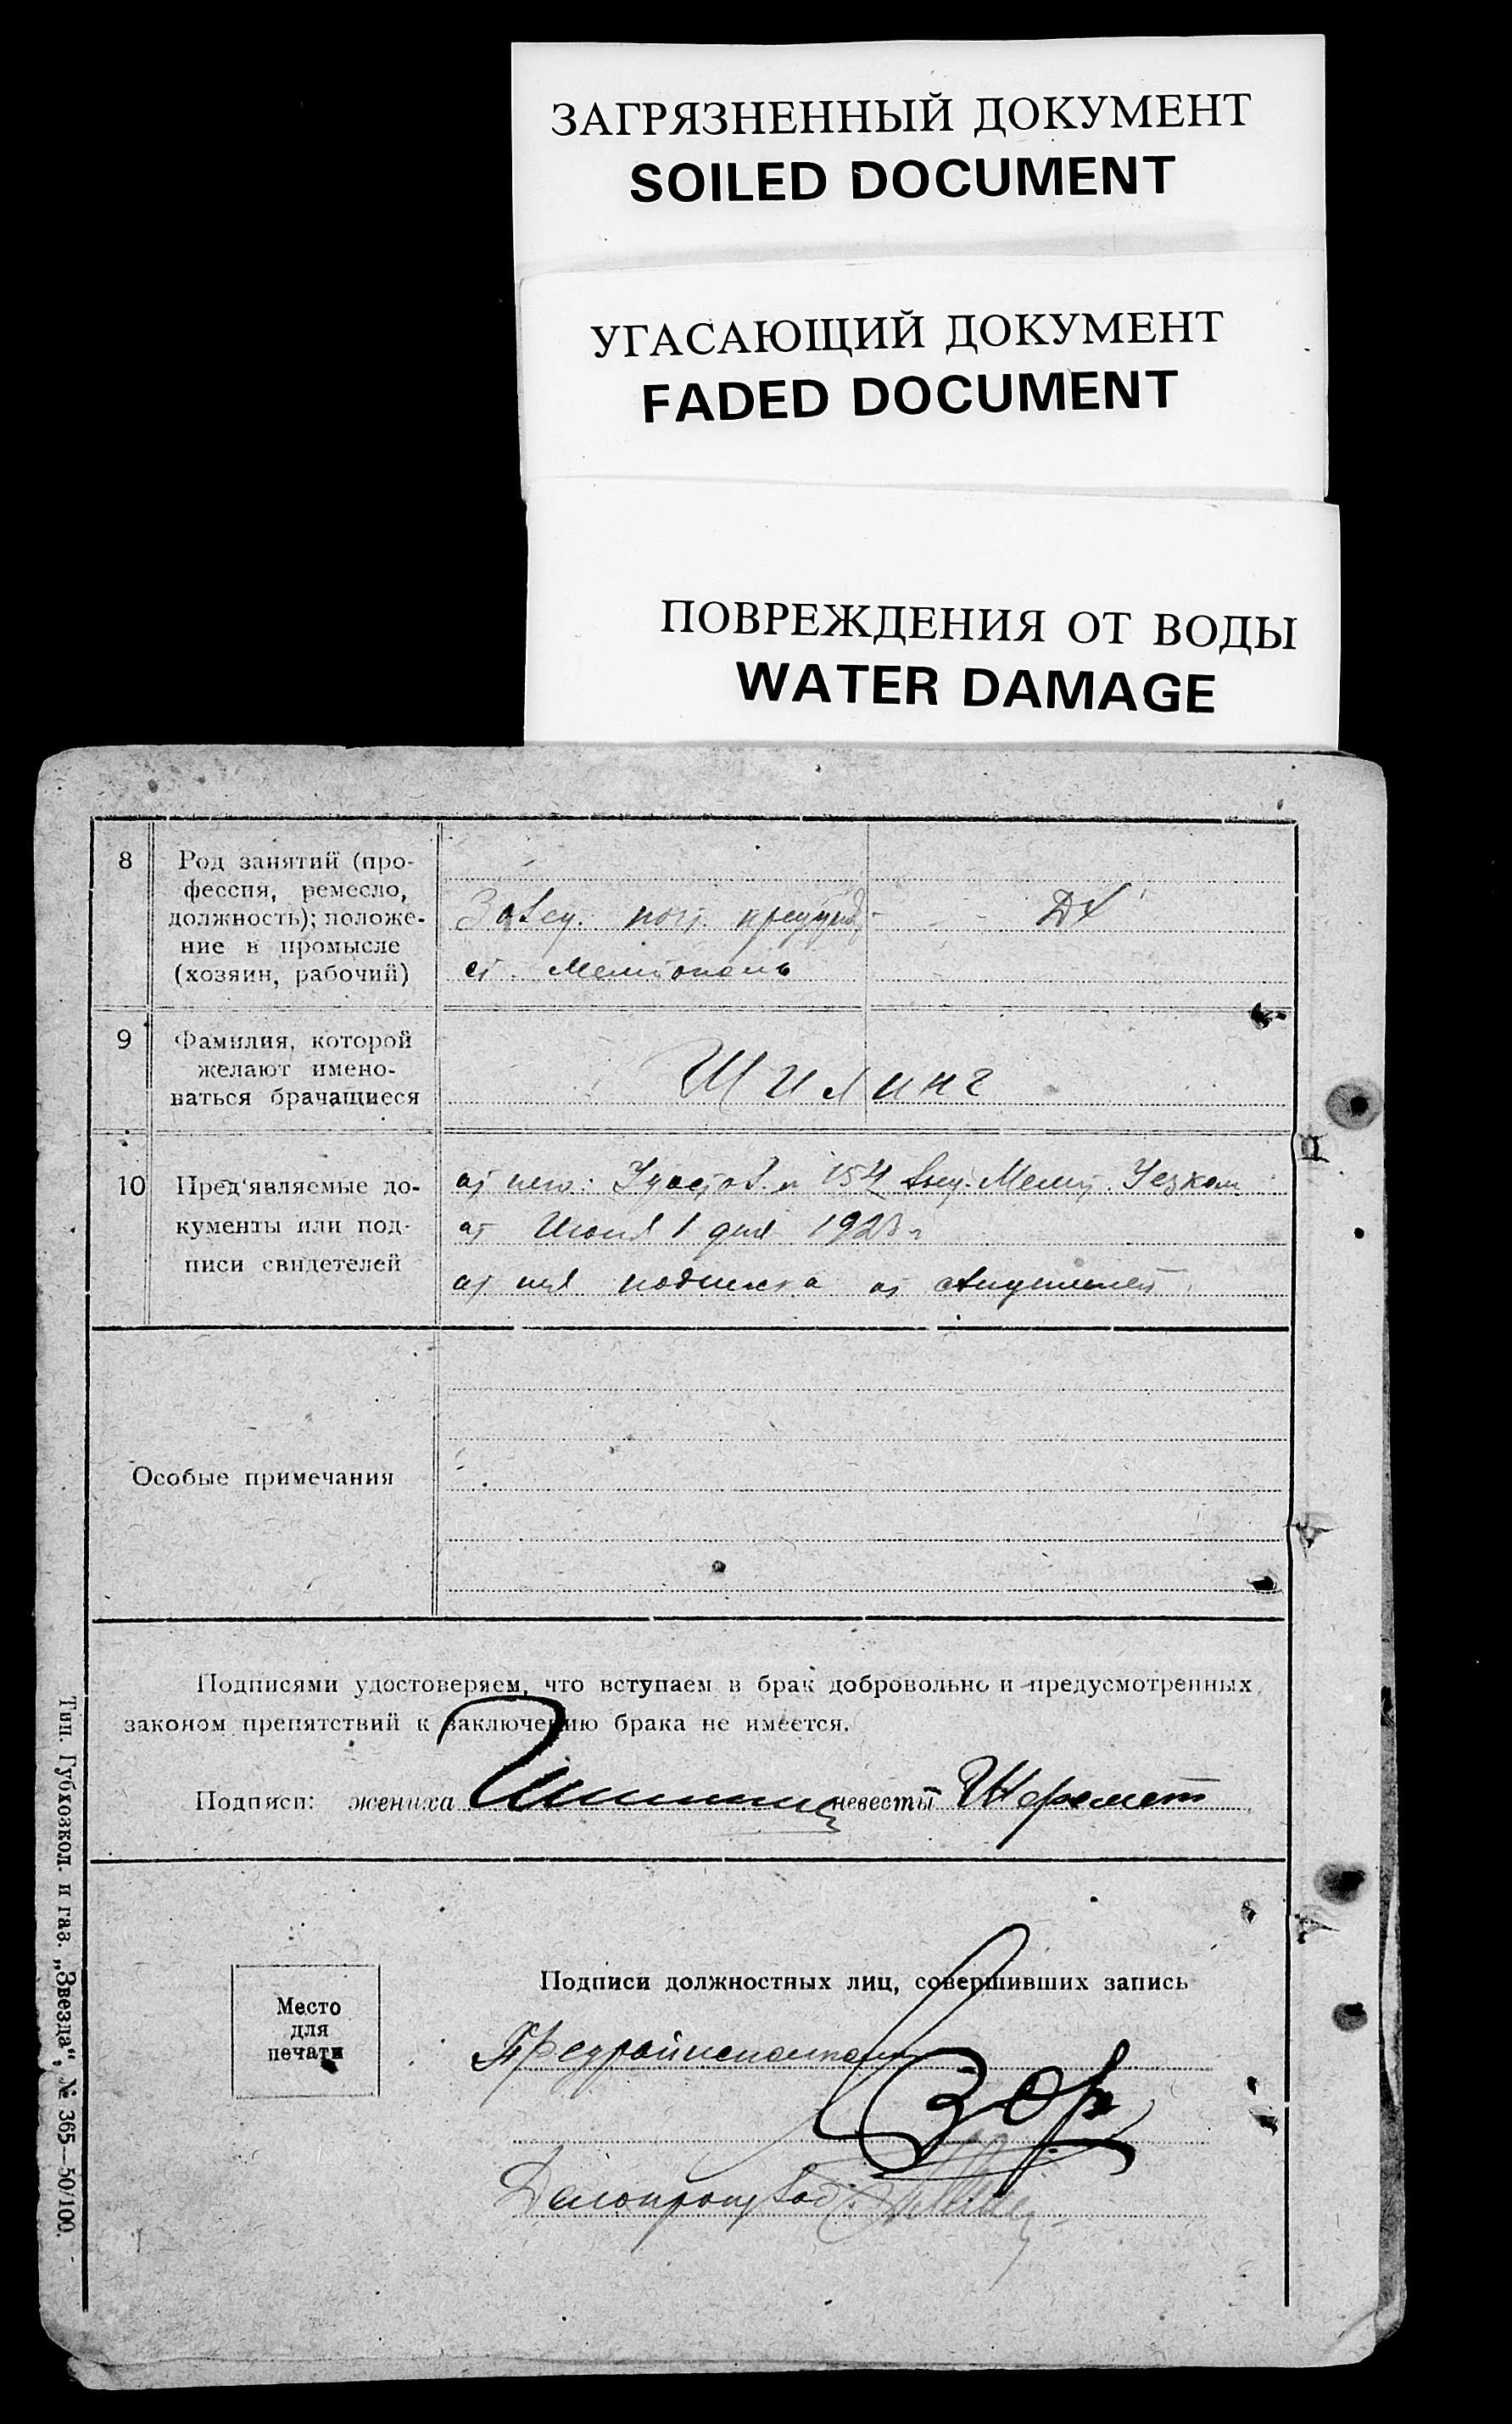 ЗАГРЯЗНЕННЫЙ ДОКУМЕНТ
SOILED DOCUMENT
УГАСАЮЩИЙ ДОКУМЕНТ
FADED DOCUMENT
ПОВРЕЖДЕНИЯ ОТ ВОДЫ
WATER DAMAGE
8 Род занятий (про-
фессия, ремесло,
должность); положе-
ние в промысле
(хозяин, рабочий)
ДХ
ст. Мелитополь
9 Фамилия, которой
желают имено-
ваться брачащиеся
Шилинг
10 Пред'являемые до-
кументы или под-
писи свидетелей
от него: 154 Уезком
от Июня 1 дня 1923 г
от нея подписка от
Особые примечания
Подписями удостоверяем, что вступаем в брак добровольно и предусмотренных
законом препятствий к заключению брака не имеется.
Подписи: жениха невесты Шеремет
Место
для
печати
Подписи должностных лиц, совершивших запись
Предрайисполкома
Делопроизвод
Тип. Губкозкол. и газ. „Звезда“, № 365—50/100.